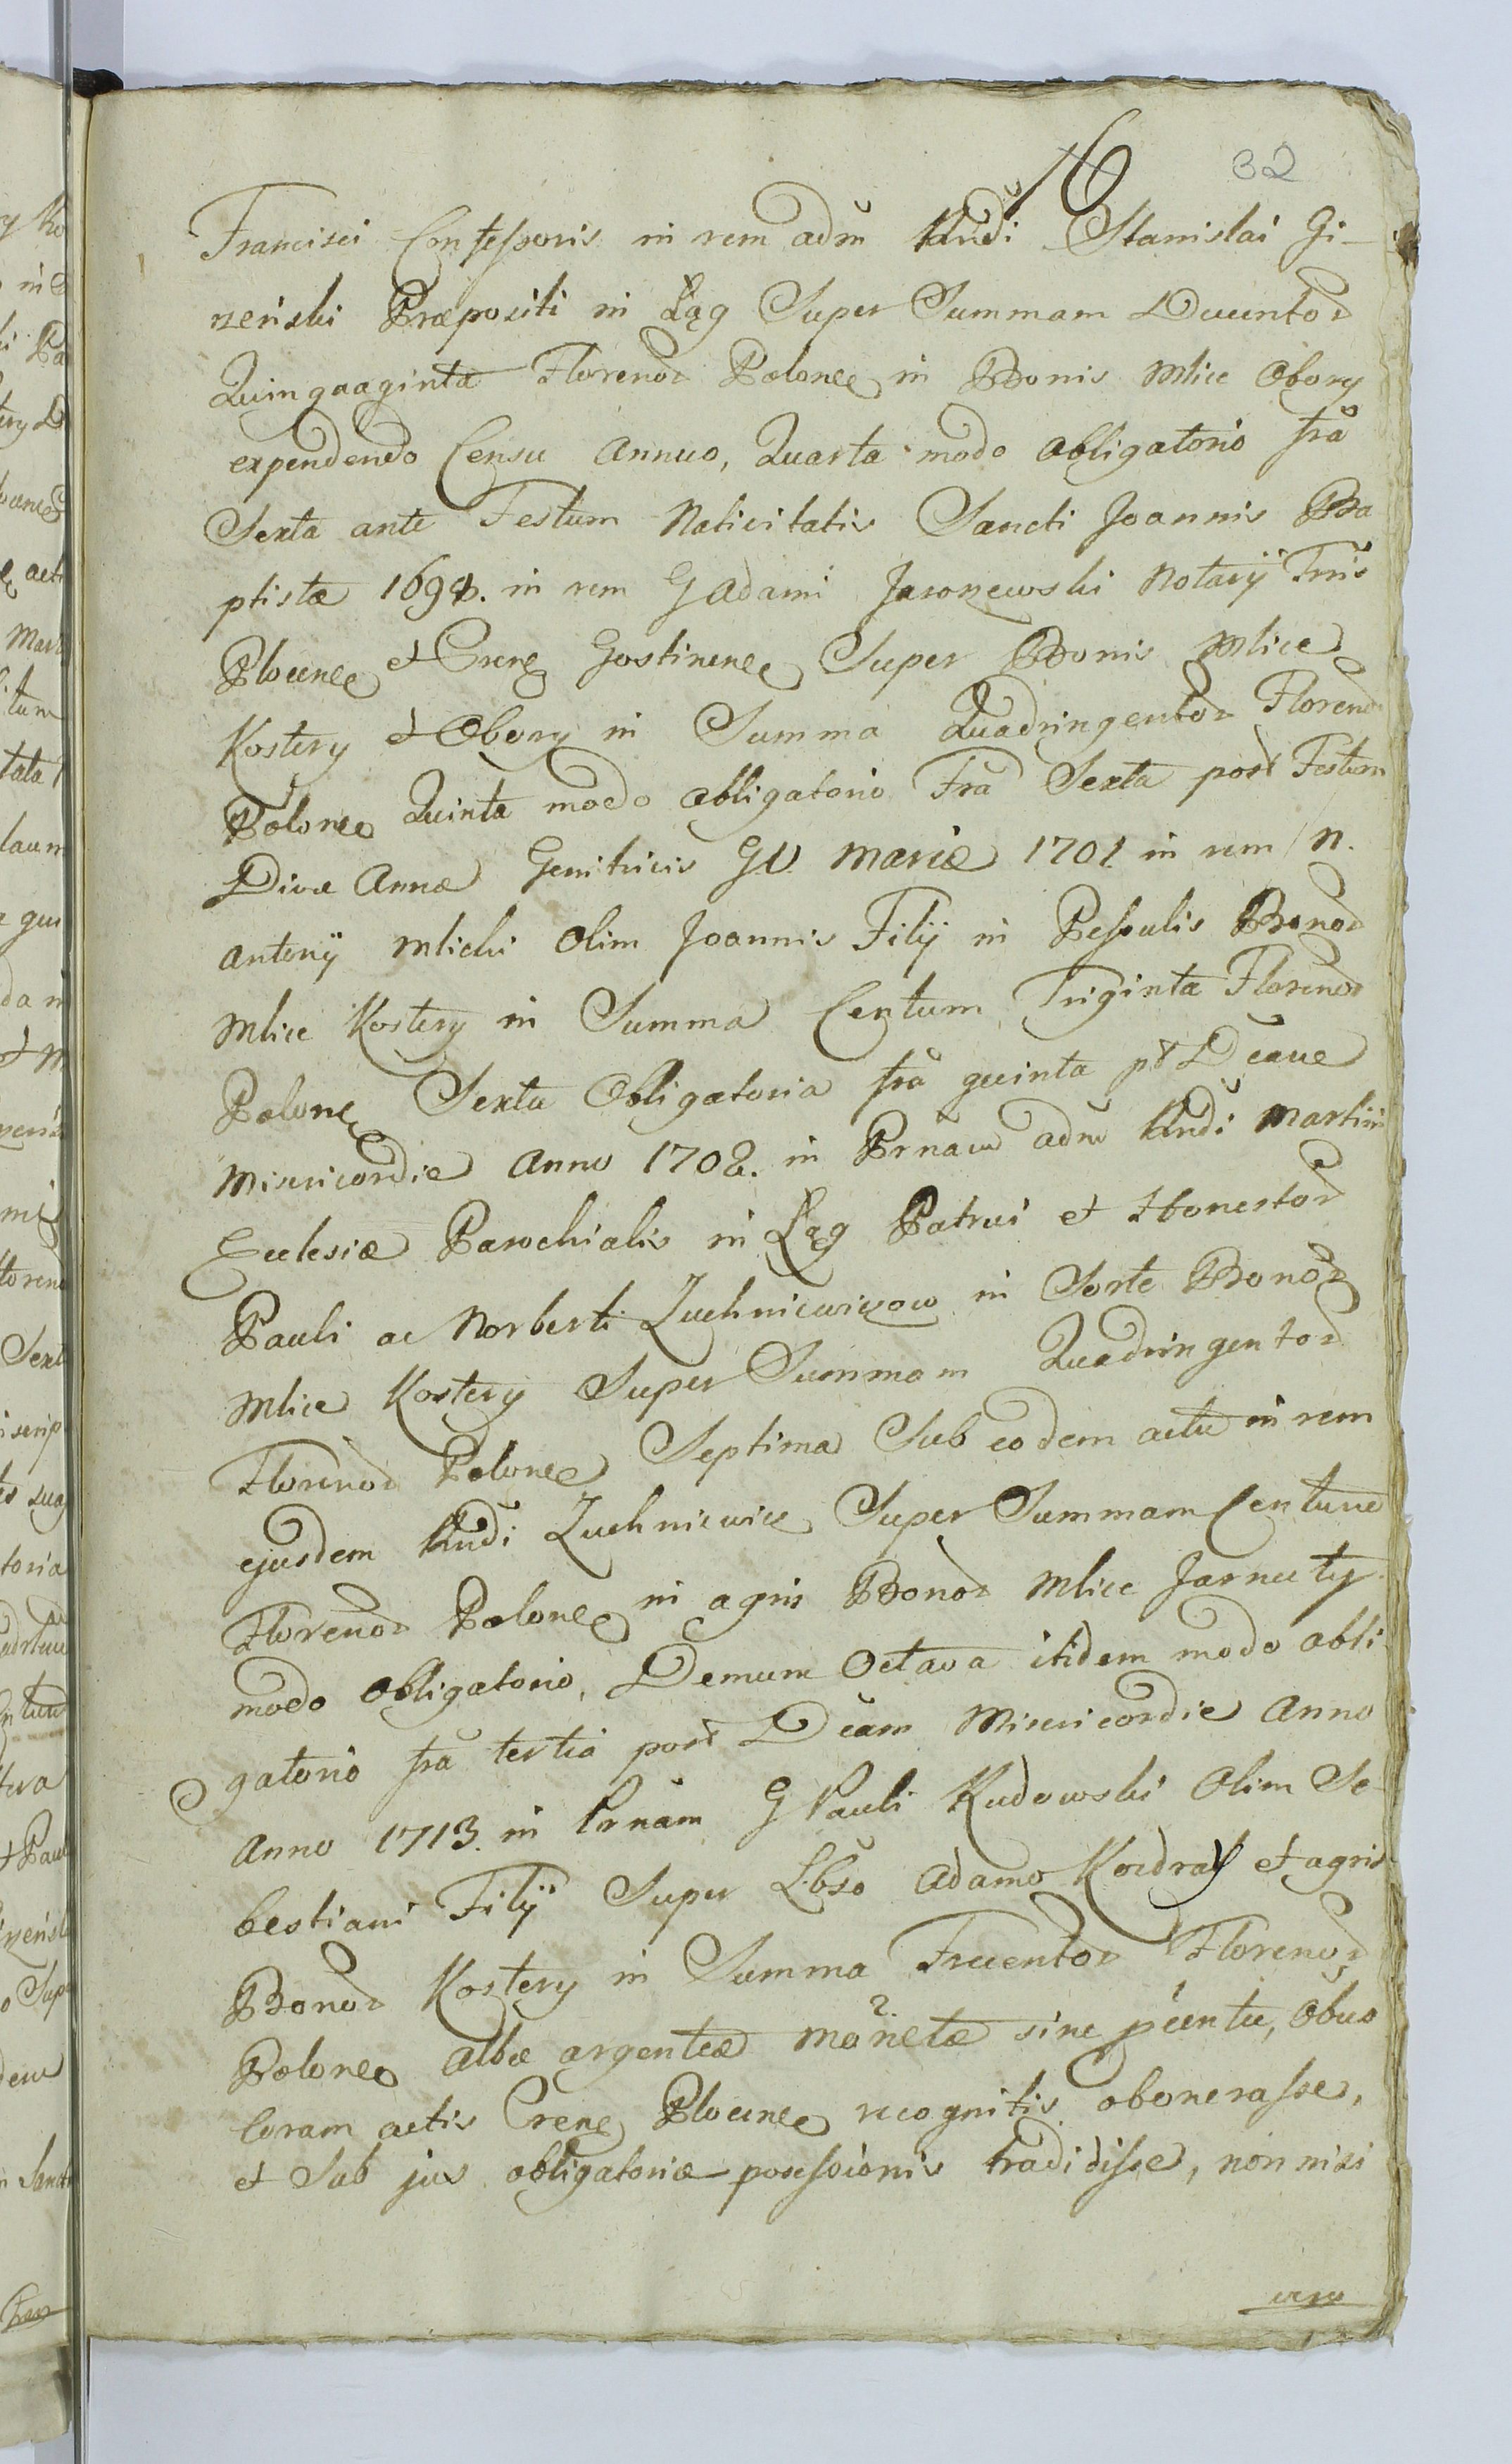 16 32
Francisci Confessoris in rem adm̃ Rñdi Stanislai Gi-
zeński Præpositi in Łąg Super Summam Ducentor
Quinquaginta Florenor Polonc in Bonis Mlice Obory
expendendo Censu Annuo, Quarta modo obligatorio fra
Sexta ante Festum Nativitatis Sancti Joannis Ba
ptistæ 1698. in rem G Adami Jaroszewski Notarÿ Trris
Plocens et Crens Gostinens Super Bonis Mlice
Kostery et Obory in Summa Quadringentor Florenor
Polonc Quinta modo obligatorio Fra Sexta post Festum
Divæ Annæ Genitricis G.V. Mariæ 1701 in rem N.
Antonÿ Mlicki Olim Joannis Filÿ in Pessulis Bonor
Mlice Kostery in Summa Centum Triginta Florenor
Polonc Sexta Obligatoria fra quinta pt Dcam
Misericordiæ Anno 1708. in Prñam adm Rñdi Martini
Ecclesiæ Parochialis in Łąg Patrui et Honestor
Pauli ac Norberti Zuchniewiczow in Sorte Bonor
Mlice Kostery Super Summam Quadringentor
Florenor Polonc Septima Sub eodem actu in rem
ejusdem Rñdi Zuchniewicz Super Summam Centum
Florenor Polonc in agris Bonor Mlice Jarnuty
modo Obligatorio, Demum Octava itidem modo obli-
gatorio fra tertia post Dcam Misericordiæ Anno
Anno 1713. in Prñam G Pauli Rudowski Olim Se-
bestiani Filÿ Super Lbso Adamo Kozdray et agris
Bonor Kostery in Summa Trecentor Florenor
Polonc albæ argenteæ monetæ sine pcentu, Obus
Coram actis Crens Plocens recognitis obonerasse,
et Sub jus obligatoriæ possessionis tradidisse, non nisi
vero